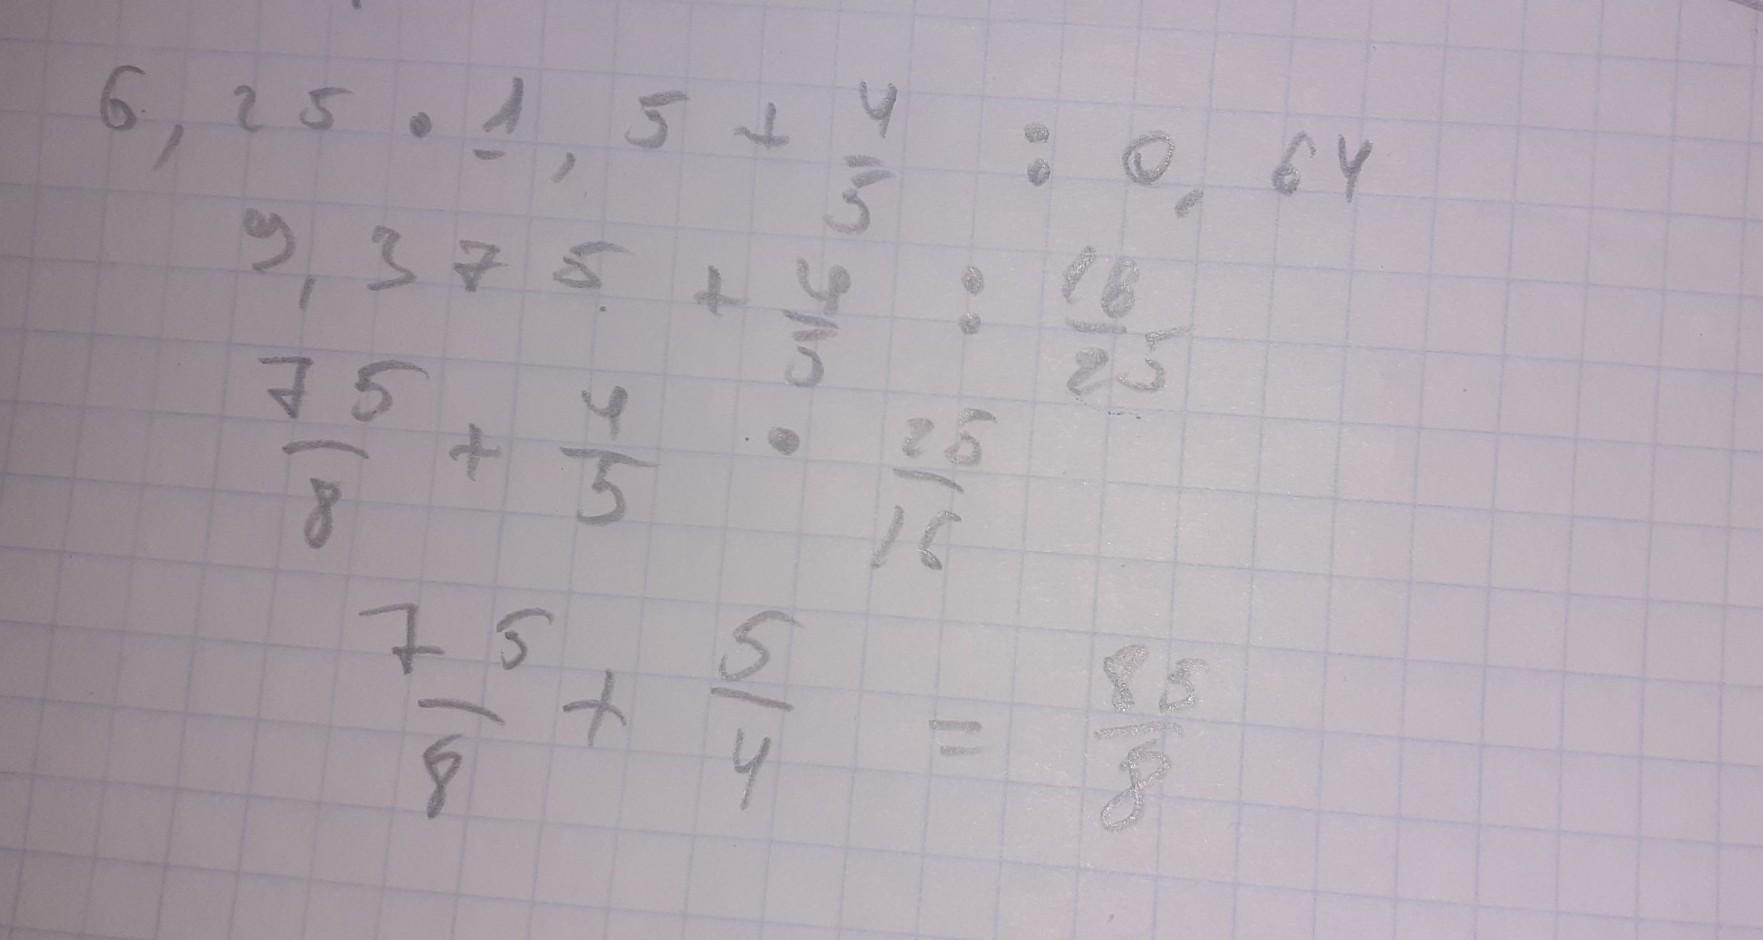 6,25 • 1,5 + 4/5 : 0,64
9,375 + 4/5 : 16/25
75/8 + 4/5 • 25/16
75/8 + 5/4 = 85/8